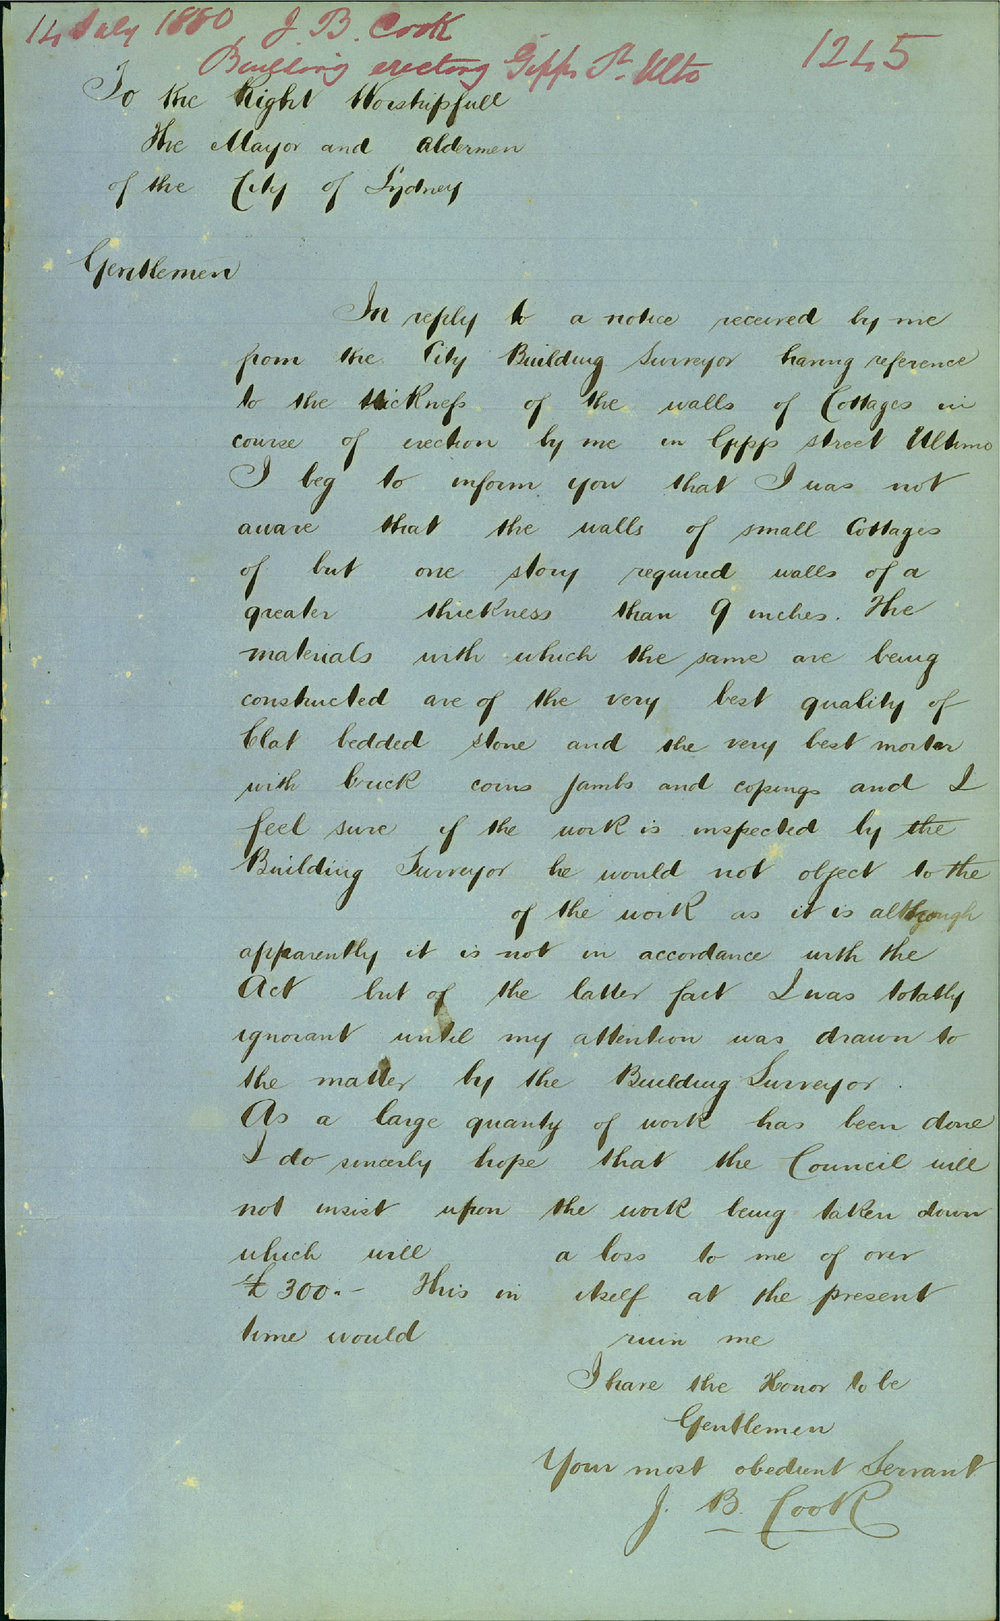 14 July 1880 J. B. Cook
Buildings erecting Gipps St. Ulto
1245
To the Right Worshipfull
The Mayor and Aldermen
of the City of Sydney
Gentlemen
In reply to a notice received by me
from the City Building Surveyor having reference
to the thickness of the walls of Cottages in
course of erection by me in Gipps street Ultimo
I beg to inform you that I was not
aware that the walls of small Cottages
of but one story required walls of a
greater thickness than 9 inches. The
materials with which the same are being
constructed are of the very best quality of
flat bedded stone and the very best mortar
with brick coins jambs and copings and I
feel sure if the work is inspected by the
Building Surveyor he would not object to the
of the work as it is although
apparently it is not in accordance with the
Act but of the latter fact I was totally
ignorant until my attention was drawn to
the matter by the Building Surveyor.
As a large quanty of work has been done
I do sincerly hope that the Council will
not insist upon the work being taken down
which will a loss to me of over
£300.- This in itself at the present
time would ruin me
I have the Honor to be
Gentlemen
Your most obedient Servant
J. B. Cook